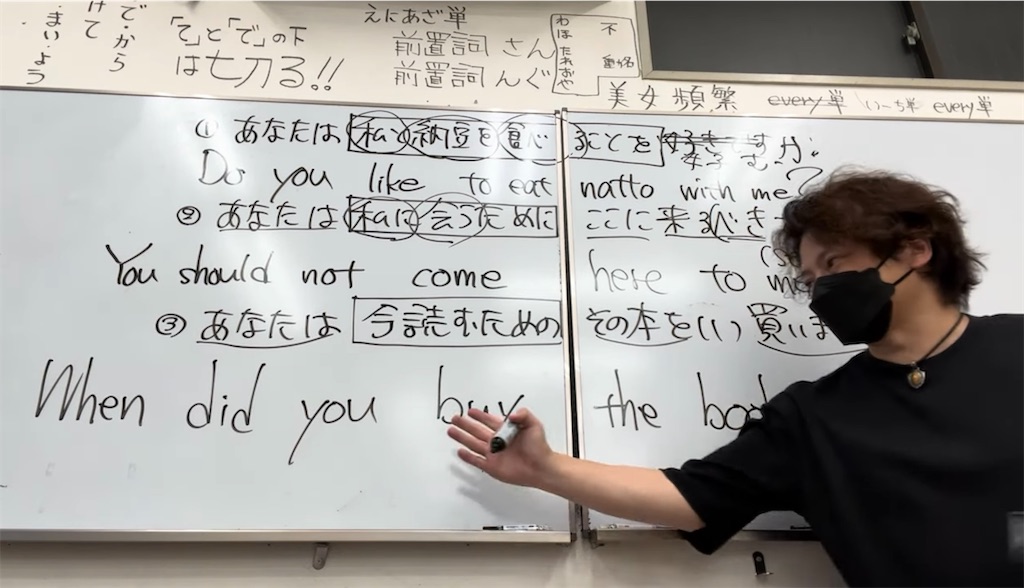 で・から
けて
まい・よう
「て」と「で」の下
は七刀る!!
えにあざ単
前置詞 さん
前置詞 んぐ
不
動名
美女頻繁 every単 いーち単 every単
① あなたは 私と 納豆を 食べ ることを 好きですか?
Do you like to eat natto with me?
② あなたは 私に 会うために ここに 来るべき
You should not come here to
③ あなたは 今読むための その本を いつ 買いま
When did you buy the boo